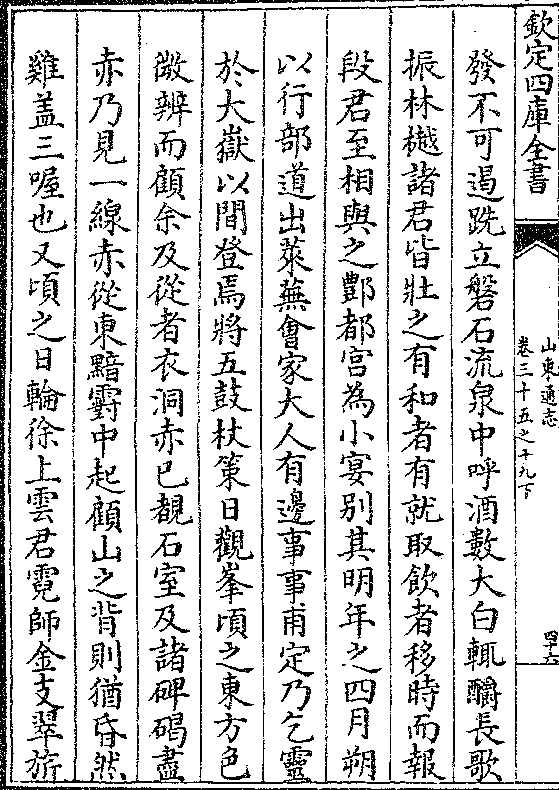 欽定四庫全書
山東通志
卷三十五之十九下
四十六
發不可遏跣立磐石流泉中呼酒數大白輒釂長歌
振林樾諸君皆壯之有和者有就取飲者移時而報
段君至相與之酆都宮為小宴別其明年之四月朔
以行部道出萊蕪會家大人有邊事事甫定乃乞靈
於大嶽以間登焉將五鼓杖策日觀峯頃之東方色
微辨而顧余及從者衣洞赤已覩石室及諸碑碣盡
赤乃見一線赤從東黯霨中起顧山之背則猶昏然
雞盖三喔也又頃之日輪徐上雲君霓師金支翠旂